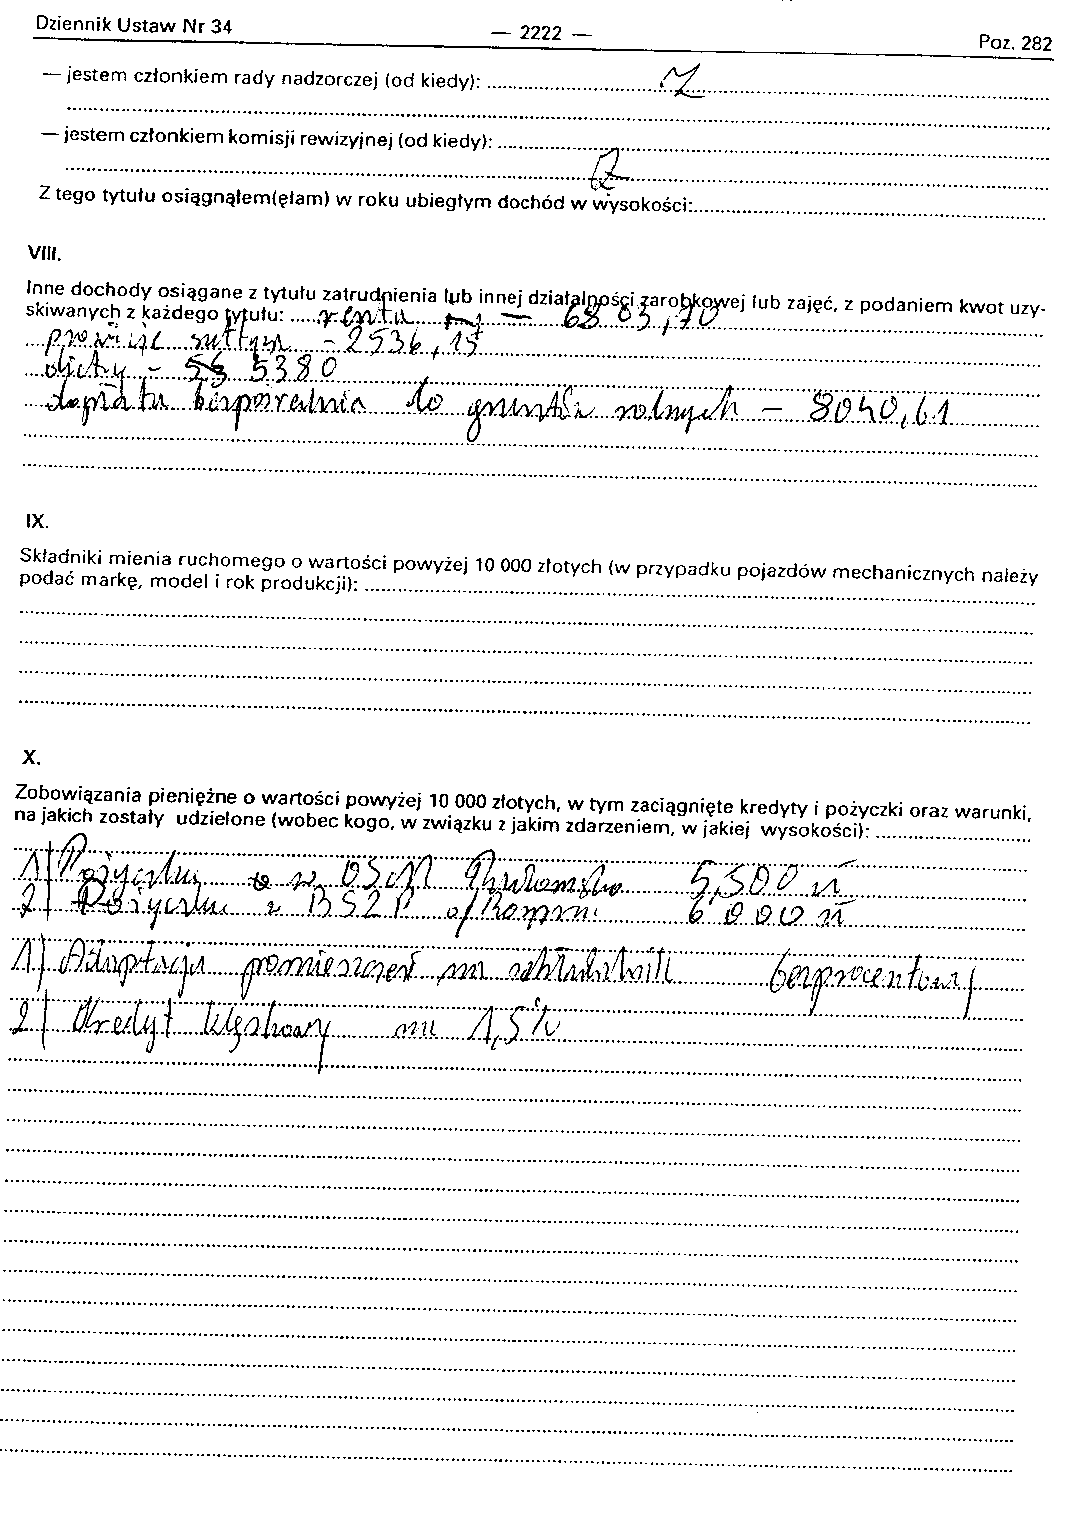 Dziennik Ustaw Nr 34 — 2222 — Poz. 282
— jestem członkiem rady nadzorczej (od kiedy):
— jestem członkiem komisji rewizyjnej (od kiedy):
Z tego tytułu osiągnąłem(ęłam) w roku ubiegłym dochód w wysokości:
VIII.
Inne dochody osiągane z tytułu zatrudnienia lub innej działalności zarobkowej lub zajęć, z podaniem kwot uzy-
skiwanych z każdego tytułu: renta — 6803,70
prowizje - 2536,15
diety - 5380
dopłata bezpośrednia do gruntów rolnych - 8040,61
IX.
Składniki mienia ruchomego o wartości powyżej 10 000 złotych (w przypadku pojazdów mechanicznych należy
podać markę, model i rok produkcji):
X.
Zobowiązania pieniężne o wartości powyżej 10 000 złotych, w tym zaciągnięte kredyty i pożyczki oraz warunki,
na jakich zostały udzielone (wobec kogo, w związku z jakim zdarzeniem, w jakiej wysokości):
1) Pożyczka w 5,500 zł
2) Pożyczka z 6 000 zł
1) Adaptacja pomieszczeń na bezprocentowy
2) Kredyt klęskowy na 1,5%